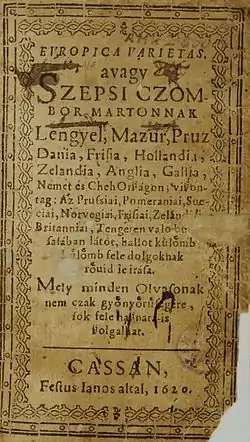 EVROPICA VARIETAS.
avagy
SZEPSI CZOM-
BOR MARTONNAK
Lengyel, Mazur, Pruz
Dania, Frisia, Hollandia,
Zelandia, Anglia, Gallia,
Nemet és Cheh Orszagon, viszon-
tag: Az Prussiai, Pomeraniai, Sue-
ciai, Norvegiai, Frisiai, Zeland
Britanniai, Tengeren valo bu-
sasában látot, hallot külömb
külömb fele dolgoknak
rövid le irása.
Mely minden Olvasonak
nem czak gyönyörüségere,
sok fele hasnara is
szolgalhat.
CASSAN,
Festus Ianos altal, 1620.